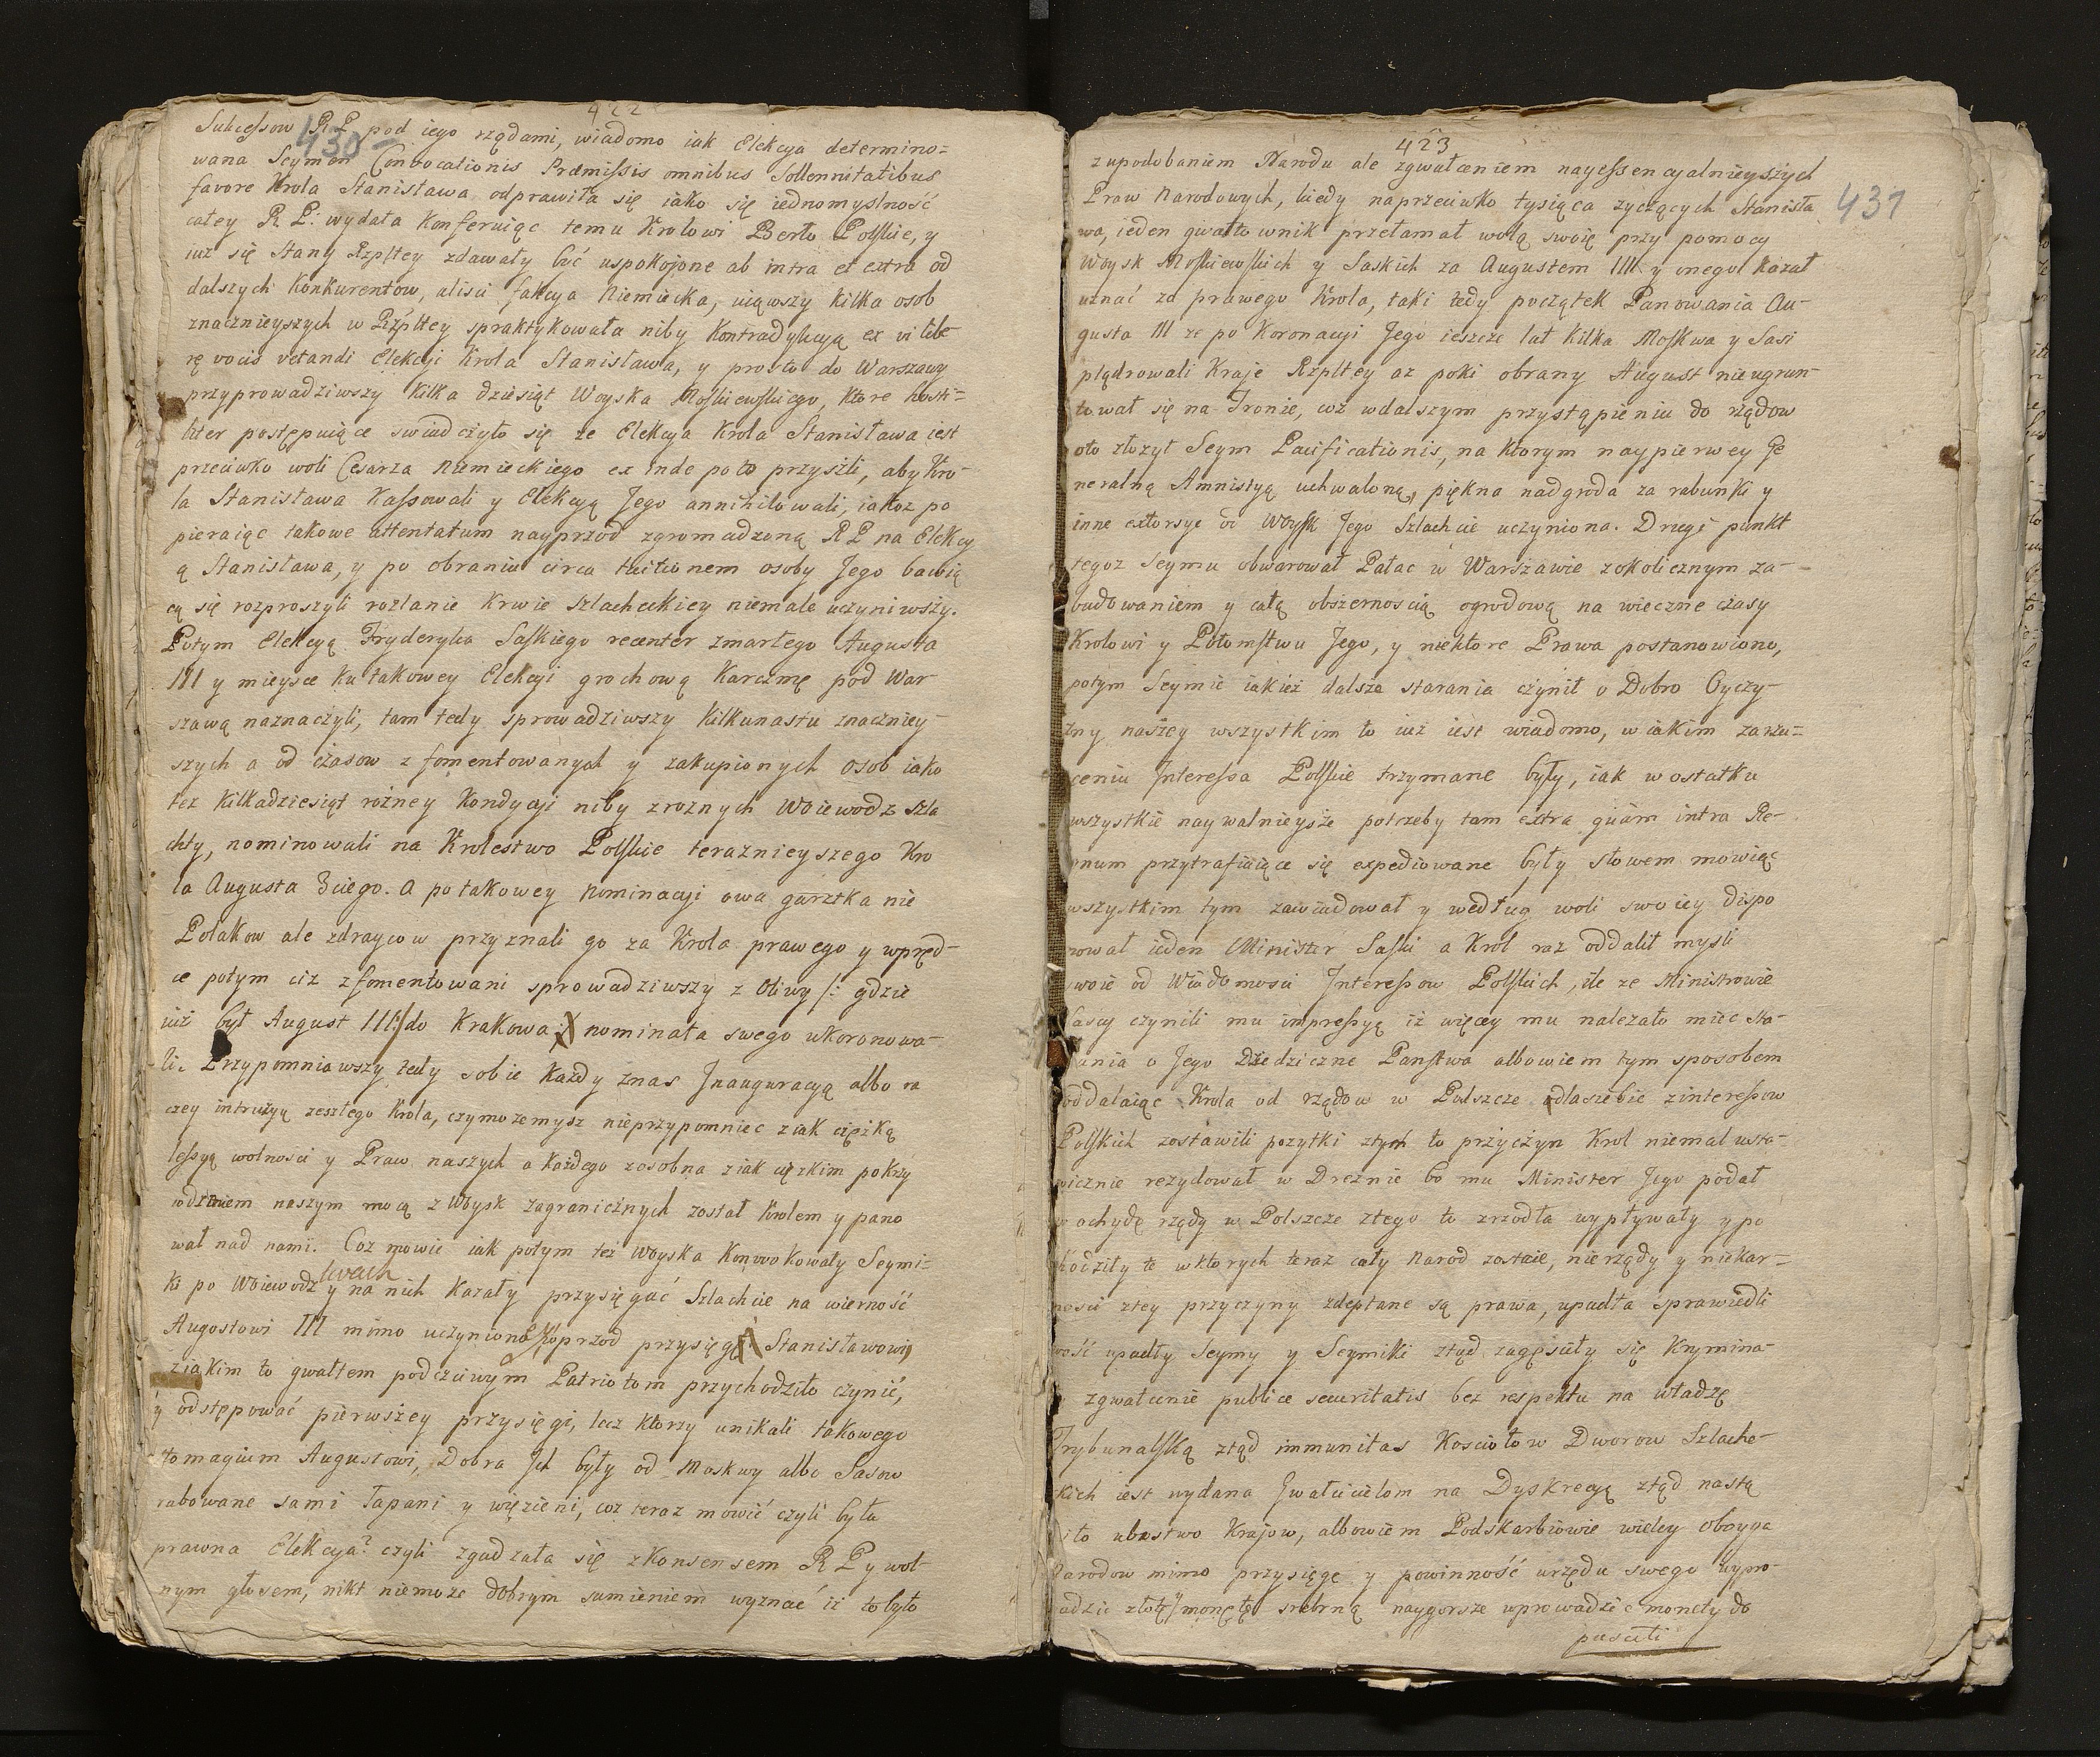 422
430
Sukcessow R P pod iego rządami, wiadomo iak Elekcya determino=
wana Seymem Convocationis Præmissis omnibus Sollennitatibus
favore Krola Stanisława odprawiła się iako się iednomyslność
całey R P: wydała konferuiąc temu Krolowi Berło Polskie, y
iuż się Stany Rzpltey zdawały być uspokojone ab intra et extra od
dalszych Konkurentow, alisci fakcya Niemiecka, uiąwszy kilka osob
znacznieyszych w Rzpltey spraktykowała niby Kontradykcyą ex vi libe
rę vocis vetandi Elekcyi Krola Stanisława, y prosto do Warszawy
przyprowadziwszy kilka dziesiąt Woyska Moskiewskiego, ktore hosti=
liter postępuiące swiadczyło się ze Elekcya Krola Stanisława iest
przeciwko woli Cesarza Niemieckiego ex inde po to przyszli, aby Kro-
la Stanisława Kassowali y Elekcyą Jego annihilowali, iakoz po
pieraiąc takowe attentatum nayprzod zgromadzoną R P na Elekcy
ą Stanisława, y po obraniu circa tuitionem osoby Jego bawią
cą się rozproszyli rozlanie krwie szlacheckiey niemałe uczyniwszy.
Potym Elekcyą Fryderyka Saskiego recenter zmarłego Augusta
III y mieysce ku takowey Elekcyi grochową Karczmę pod War
szawą naznaczyli, tam tedy sprowadziwszy kilkunastu znaczniey-
szych a od czasow z fomentowanych y zakupionych osob iako
też kilkadziesiąt rożney Kondycyi niby z roznych Woiewodz szla
chty, nominowali na Krolestwo Polskie teraznieyszego Kro
la Augusta 3ciego. A po takowey Nominacyi owa garztka nie
Polakow ale zdraycow przyznali go za Krola prawego y wpręd-
ce potym ciz zfomentowani sprowadziwszy z Oliwy /: gdzie
iuż był August III:/ do Krakowa nominata swego ukoronowa-
li. Przypomniawszy tedy sobie każdy znas Jnauguracyą albo ra
czey intruzyą zeszłego Krola, czymozemysz nieprzypomniec z iak cięzką
lessyą wolnosci y Praw naszych a każdego zosobna z iak cięzkim pokrzy
wdzeniem naszym mocą z Woysk zagranicznych został Krolem y pano
wał nad nami. Coz mowie iak potym też Woyska Konvokowały Seymi=
lwach
ki po Woiewodz y na nich kazały przysięgać Szlachcie na wierność
Augostowi III mimo uczynioną wprzod przysięgę Stanisławowi,
ziakim to gwałtem podczciwym Patriotom przychodziło czynić,
y odstępować pierwszey przysięgi, lecz ktorzy unikali takowego
homagium Augustowi, Dobra Jch były od Moskwy albo Sasow
rabowane sami łapani y więzieni, coz teraz mowić czyli była
prawna Elekcya? czyli zgadzała się z Konsensem R P y wol-
nym głosem, nikt niemoze dobrym sumieniem wyznać iż to było
423
431
z upodobaniem Narodu ale zgwałceniem nayessencyalnieyszych
Praw Narodowych, kiedy naprzeciwko tysiąca zyczących Stanisła
wa, ieden gwałtownik przełamał wolą swoię przy pomocy
Woysk Moskiewskich y Saskich za Augustem III y onego kazał
uznać za prawego Krola, taki tedy początek Panowania Au-
gusta III ze po Koronacyi Jego ieszcze lat kilka Moskwa y Sasi
plądrowali Kraje Rzpltey az poki obrany August nieugrun-
tował się na Tronie, coz wdalszym przystąpieniu do rządow
oto złozył Seym Pacificationis, na ktorym naypierwey Ge
neralną Amnistyą uchwaloną, piękna nadgroda za rabunki y
inne extorsye od Woysk Jego Szlachcie uczyniona. Drugi punkt
tegoz Seymu obwarował Pałac w Warszawie zokolicznym za-
budowaniem y całą obszernoscią ogrodową na wieczne czasy
Krolowi y Potomstwu Jego, y niektore Prawa postanowiono,
potym Seymie iakież dalsze starania czynił o Dobro Oyczy-
zny naszey wszystkim to iuż iest wiadomo, w iakim zarzu=
ceniu Jnteressa Polskie trzymane były, iak w ostatku
wszystkie naywalnieysze potrzeby tam extra quàm intra Re-
gnum przytrafiaiące się expediowane były słowem mowiąc
wszystkim tym zawiadował y według woli swoiey dispo
nował ieden Minister Saski a Krol raz oddalił mysli
swoie od Wiadomosci Jnteressow Polskich, ile ze Ministrowie
Sascy czynili mu impressyą iż więcey mu nalezało miec sta-
rania o Jego Dziedziczne Panstwa albowiem tym sposobem
oddalaiąc Krola od rządow w Polszcze dlasiebie zinteressow
Polskich zostawili pozytki ztych to przyczyn Krol niemal usta-
wicznie rezydował w Dreznie bo mu Minister Jego podał
w ochydę rządy w Polszcze ztego to zrzodła wypływały y po
chodziły te wktorych teraz cały Narod zostaie, nierządy y niekar-
nosci ztey przyczyny zdeptane są prawa, upadła sprawiedli
wość upadły Seymy y Seymiki ztąd zagęsciły się Krymina-
zgwałcenie publicæ securitatis bez respektu na władzę
Trybunalską ztąd immunitas Kosciołow Dworow Szlache-
ckich iest wydana Gwałcicielom na Dyskrecyą ztąd nastą
iło ubostwo Krajow, albowiem Podskarbiowie wielcy oboyga
Narodow mimo przysięgę y powinność urzędu swego wypro-
wadzic złotą y monetę srebrną naygorsze wprowadzic monety do
puscili